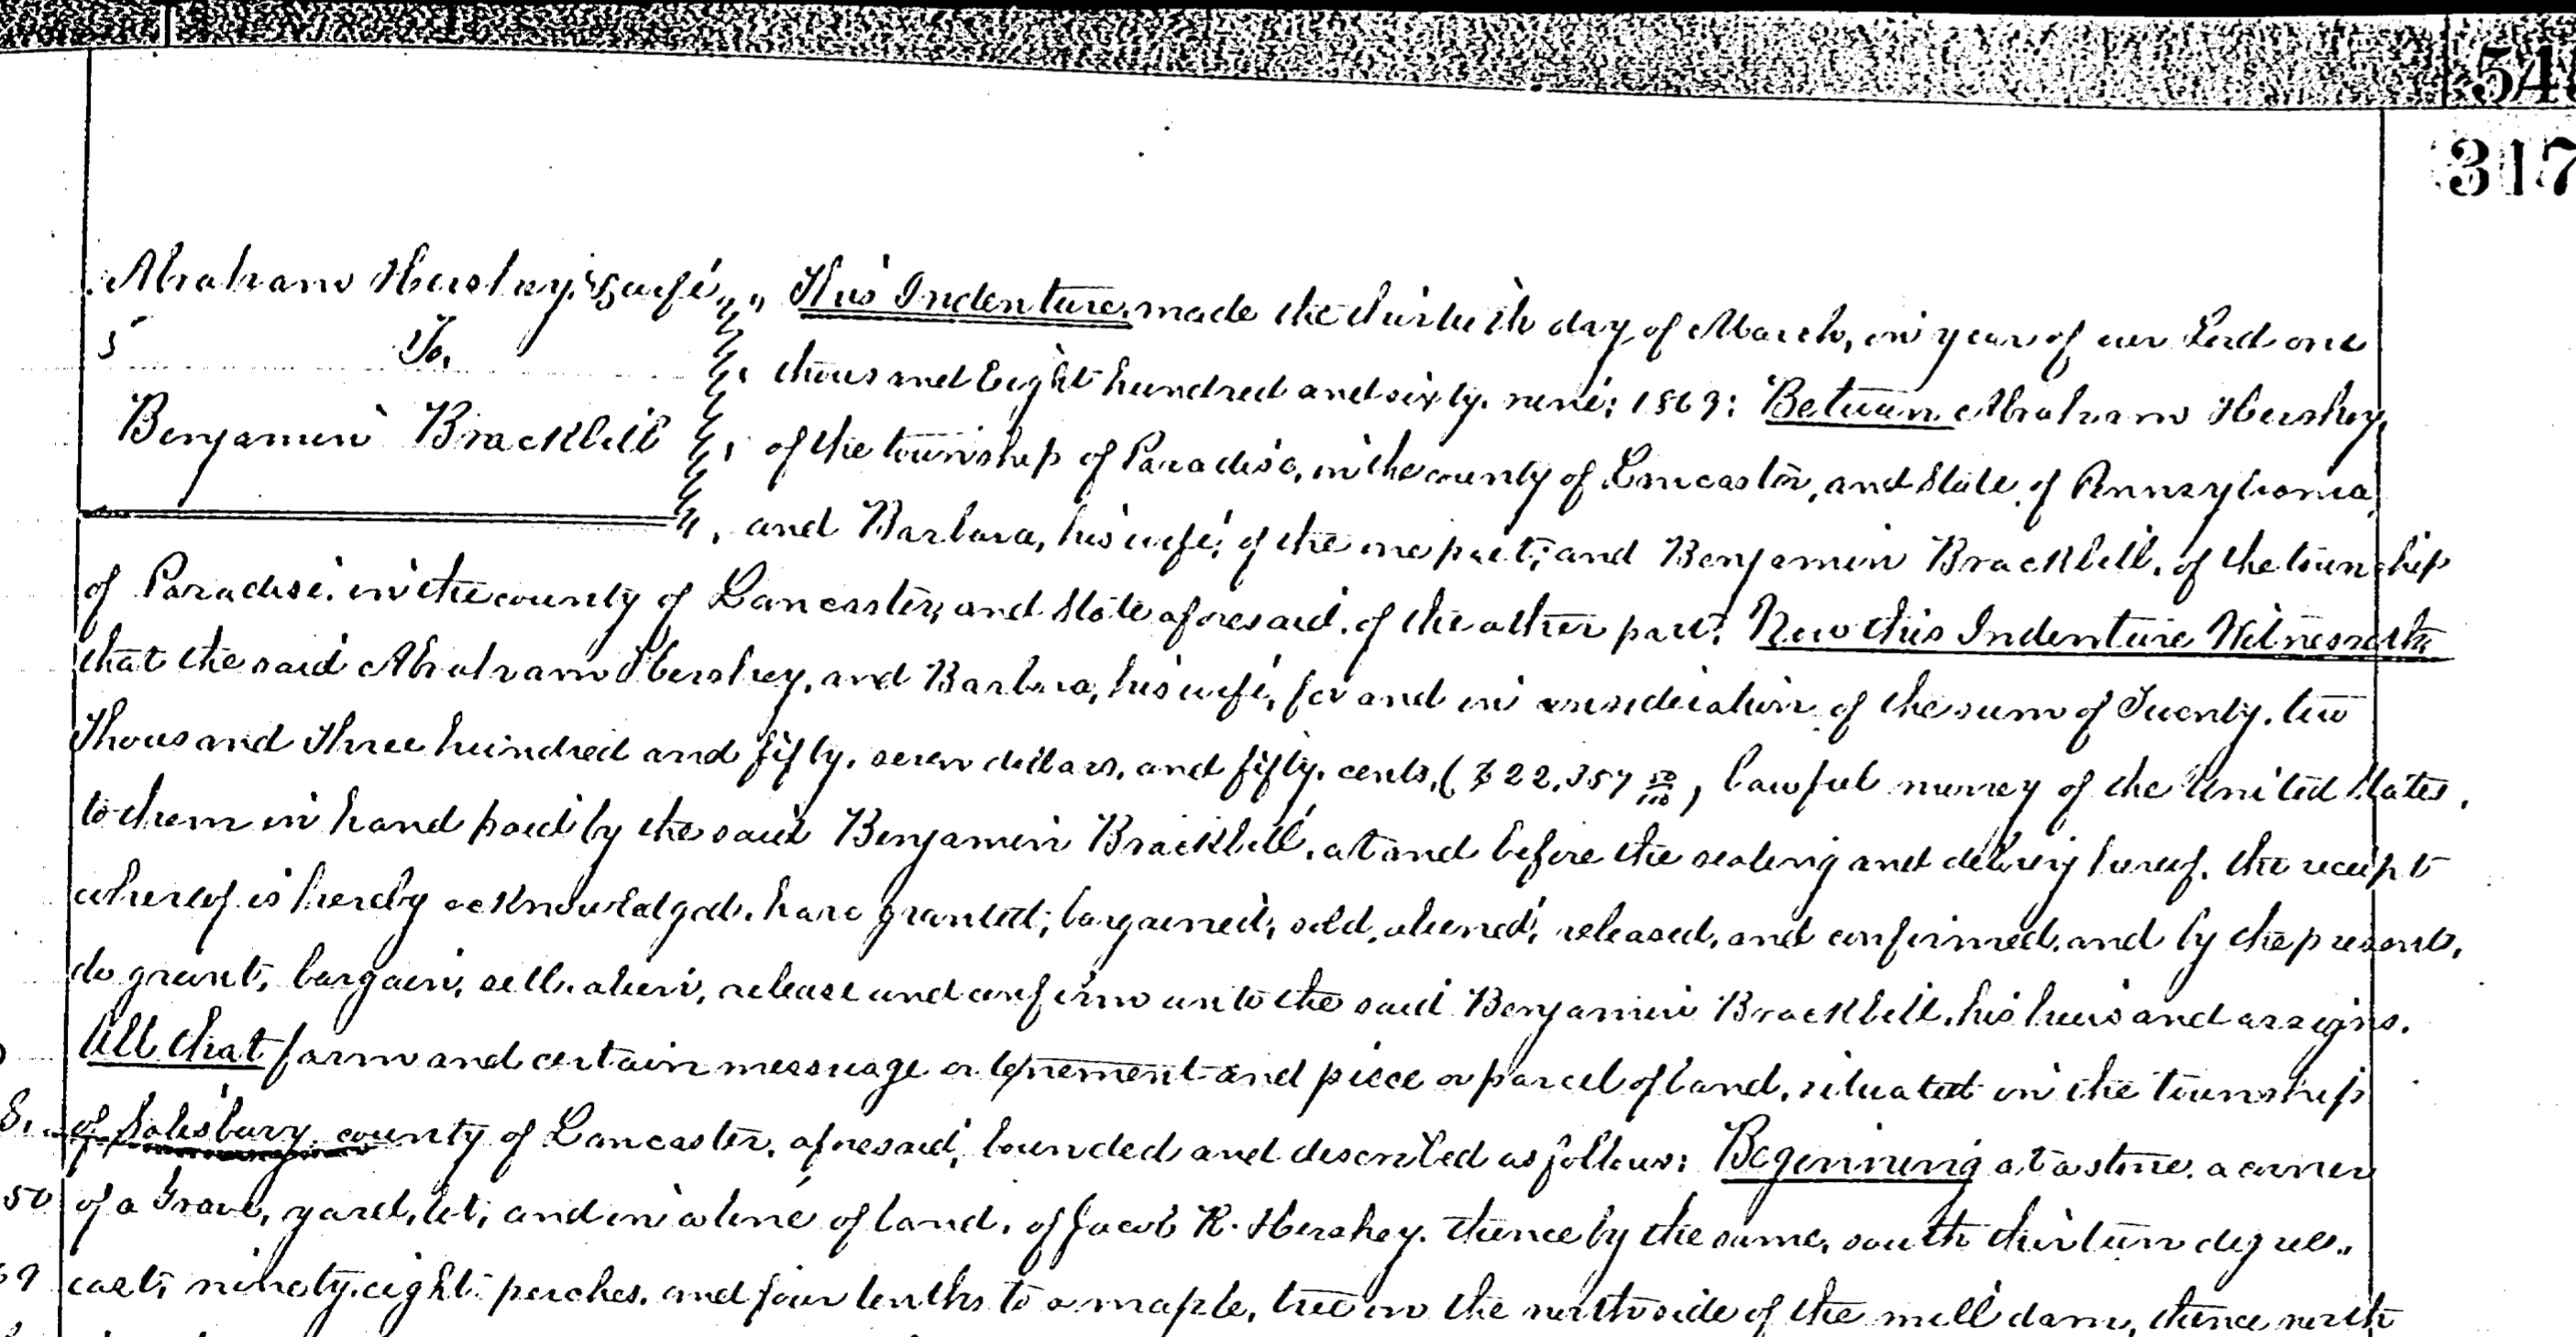 54
317
Abraham Hershey, & wife
5 To,
Benjamin Brackbill
This Indenture, made the thirtieth day of March, in year of our Lord one
thousand Eight hundred and sixty. nine; 1869: Between Abraham Hershey,
of the township of Paradise, in the county of Lancaster, and State of Pennsylvania,
and Barbara, his wife, of the one part; and Benjamin Brackbill, of the township
of Paradise. in the county of Lancaster, and State aforesaid. of the other part: Now this Indenture Witnesseth
that the said Abraham Hershey, and Barbara, his wife, for and in consideration of the sum of Twenty. two
Thousand Three hundred and fifty. seven dollars, and fifty. cents, ( $22,357 50/100, lawful money of the United States,
to them in hand paid by the said Benjamin Brackbill, at and before the sealing and delivery hereof. the receipt
whereof is hereby acknowledged. have granted, bargained, sold, aliened, released, and confirmed, and by the presents,
do grant, bargain, sell. alien, release and confirm unto the said Benjamin Brackbill, his heirs and assigns.
All that farm and certain messuage or tenement and piece or parcel of land, situated in the township
of Salisbury, county of Lancaster, aforesaid, bounded and described as follows: Beginning at a stone. a corner
50 of a Grave, yard, lot, and in a line of land. of Jacob R. Hershey. thence by the same, south thirteen degrees.
69 east, ninety. eight perches, and four tenths to a maple, tree on the north side of the mill dam, thence north